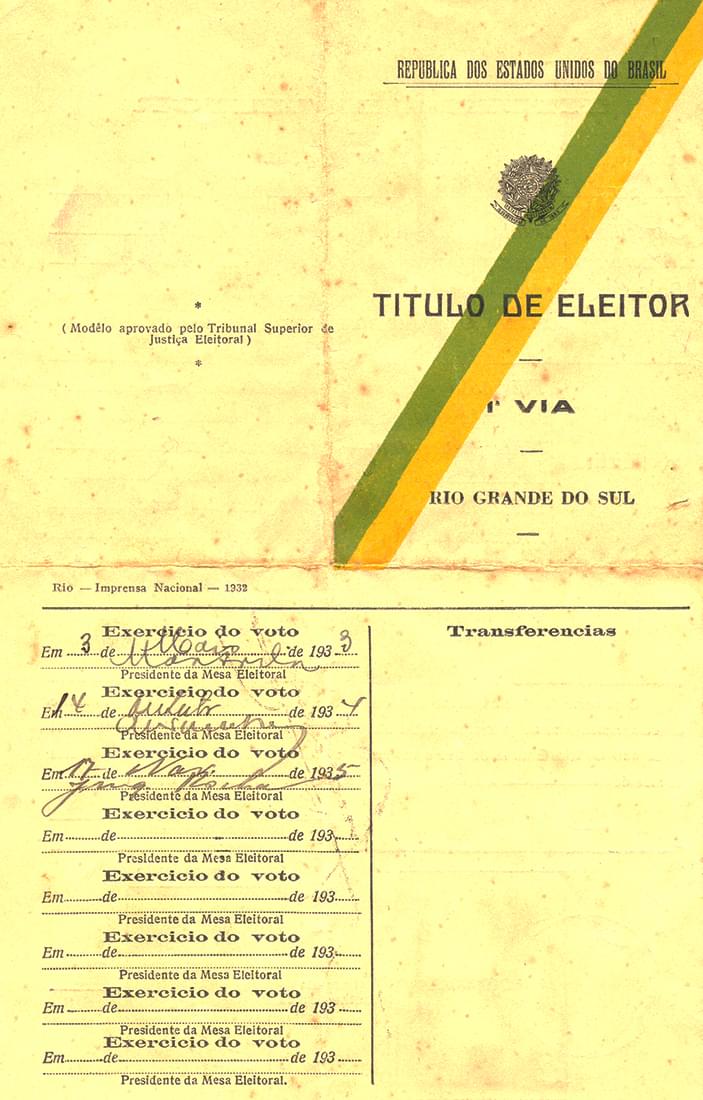 REPUBLICA DOS ESTADOS UNIDOS DO BRASIL
TITULO DE ELEITOR
1ª VIA
RIO GRANDE DO SUL
*
( Modêlo aprovado pelo Tribunal Superior de
Justiça Eleitoral )
*
Rio — Imprensa Nacional — 1932
Exercicio do voto
Em 3 de Maio de 1933
Presidente da Mesa Eleitoral
Exercicio do voto
Em 14 de Outubro de 1934
Presidente da Mesa Eleitoral
Exercicio do voto
Em 17 de Nov. de 1935
Presidente da Mesa Eleitoral
Exercicio do voto
Em de de 193
Presidente da Mesa Eleitoral
Exercicio do voto
Em de de 193
Presidente da Mesa Eleitoral
Exercicio do voto
Em de de 193
Presidente da Mesa Eleitoral
Exercicio do voto
Em de de 193
Presidente da Mesa Eleitoral
Exercicio do voto
Em de de 193
Presidente da Mesa Eleitoral.
Transferencias